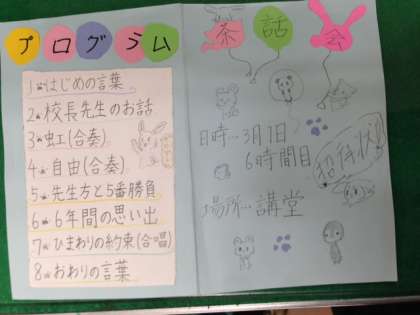 プログラム
1 はじめの言葉
2 校長先生のお話
3 虹(合奏)
4 自由(合奏)
5 先生方と5番勝負
6 6年間の思い出
7 ひまわりの約束(合唱)
8 おわりの言葉
茶話会
日時…3月1日
6時間目
場所…講堂
招待状